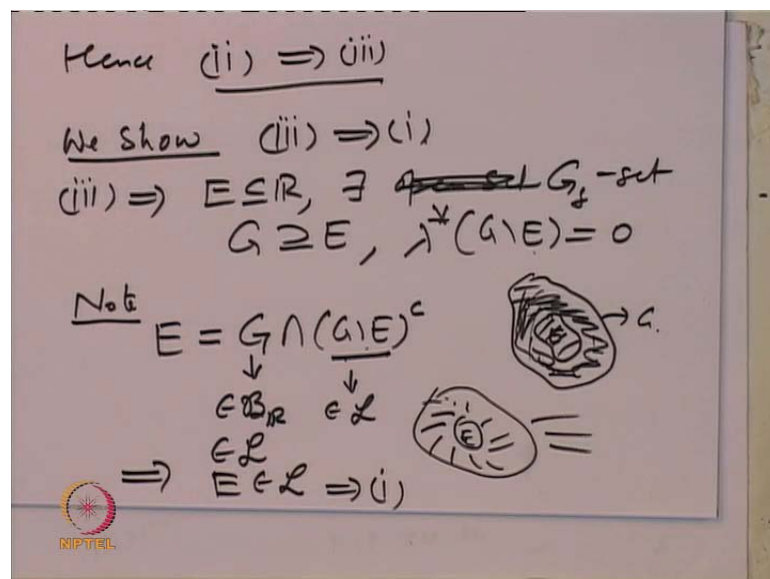 Hence (ii) ⟹ (iii)
We Show (iii) ⟹ (i)
(iii) ⟹ E ⊆ ℝ, ∃ G_δ-set
G ⊇ E, λ*(G\E) = 0
Note
E = G ∩ (G\E)^c
↓ ↓
∈ 𝓑_ℝ ∈ 𝓛
∈ 𝓛
⟹ E ∈ 𝓛 ⟹ (i)
E → G.
E
NPTEL